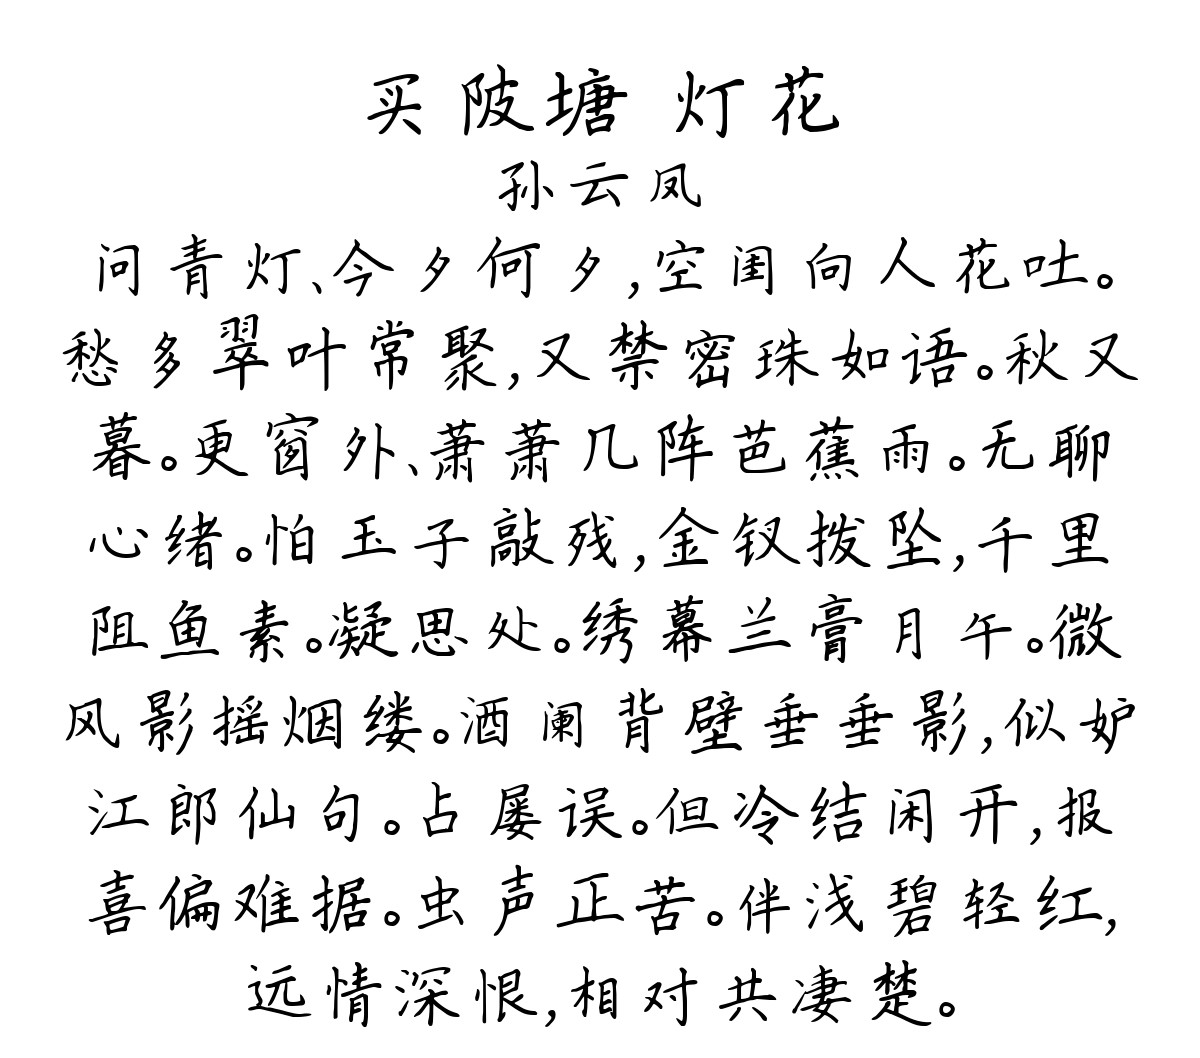 买陂塘 灯花
孙云凤
问青灯、今夕何夕,空闺向人花吐。
愁多翠叶常聚,又禁密珠如语。秋又
暮。更窗外、萧萧几阵芭蕉雨。无聊
心绪。怕玉子敲残,金钗拨坠,千里
阻鱼素。凝思处。绣幕兰膏月午。微
风影摇烟缕。酒阑背壁垂垂影,似妒
江郎仙句。占屡误。但冷结闲开,报
喜偏难据。虫声正苦。伴浅碧轻红,
远情深恨,相对共凄楚。